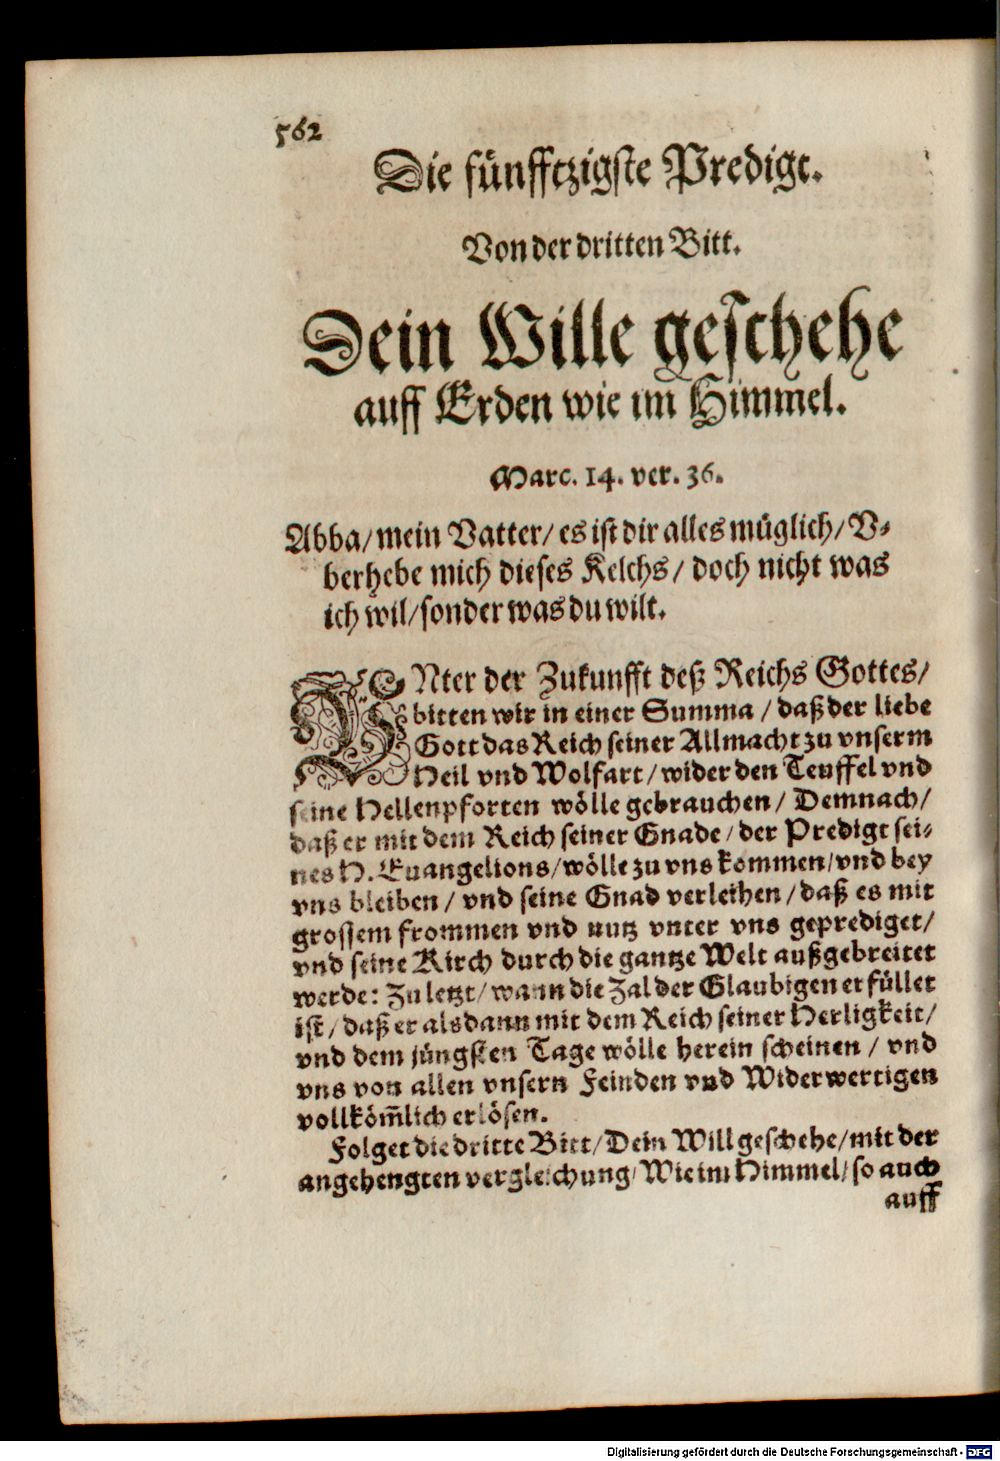 562
Die fünfftzigste Predigt.
Von der dritten Bitt.
Dein Wille geschehe
auff Erden wie im Himmel.
Marc. 14. ver. 36.
Abba/ mein Vatter/ es ist dir alles müglich/ V-
berhebe mich dieses Kelchs/ doch nicht was
ich wil/ sonder was du wilt.
VNter der Zukunfft deß Reichs Gottes/
bitten wir in einer Summa / daß der liebe
Gott das Reich seiner Allmacht zu vnserm
Heil vnd Wolfart/ wider den Teuffel vnd
seine Hellenpforten wölle gebrauchen/ Demnach/
daß er mit dem Reich seiner Gnade/ der Predigt sei-
nes H. Euangelions/ wölle zu vns kommen/ vnd bey
vns bleiben / vnd seine Gnad verleihen / daß es mit
grossem frommen vnd nutz vnter vns geprediget/
vnd seine Kirch durch die gantze Welt außgebreitet
werde: Zu letzt/ wann die Zal der Glaubigen erfüllet
ist/ daß er alsdann mit dem Reich seiner Herligkeit/
vnd dem jüngsten Tage wölle herein scheinen / vnd
vns von allen vnsern Feinden vnd Widerwertigen
vollköm̃lich erlösen.
Folget die dritte Bitt/ Dein Will geschehe/ mit der
angehengten vergleichung/ Wie im Himmel/ so auch
auff
Digitalisierung gefördert durch die Deutsche Forschungsgemeinschaft - DFG